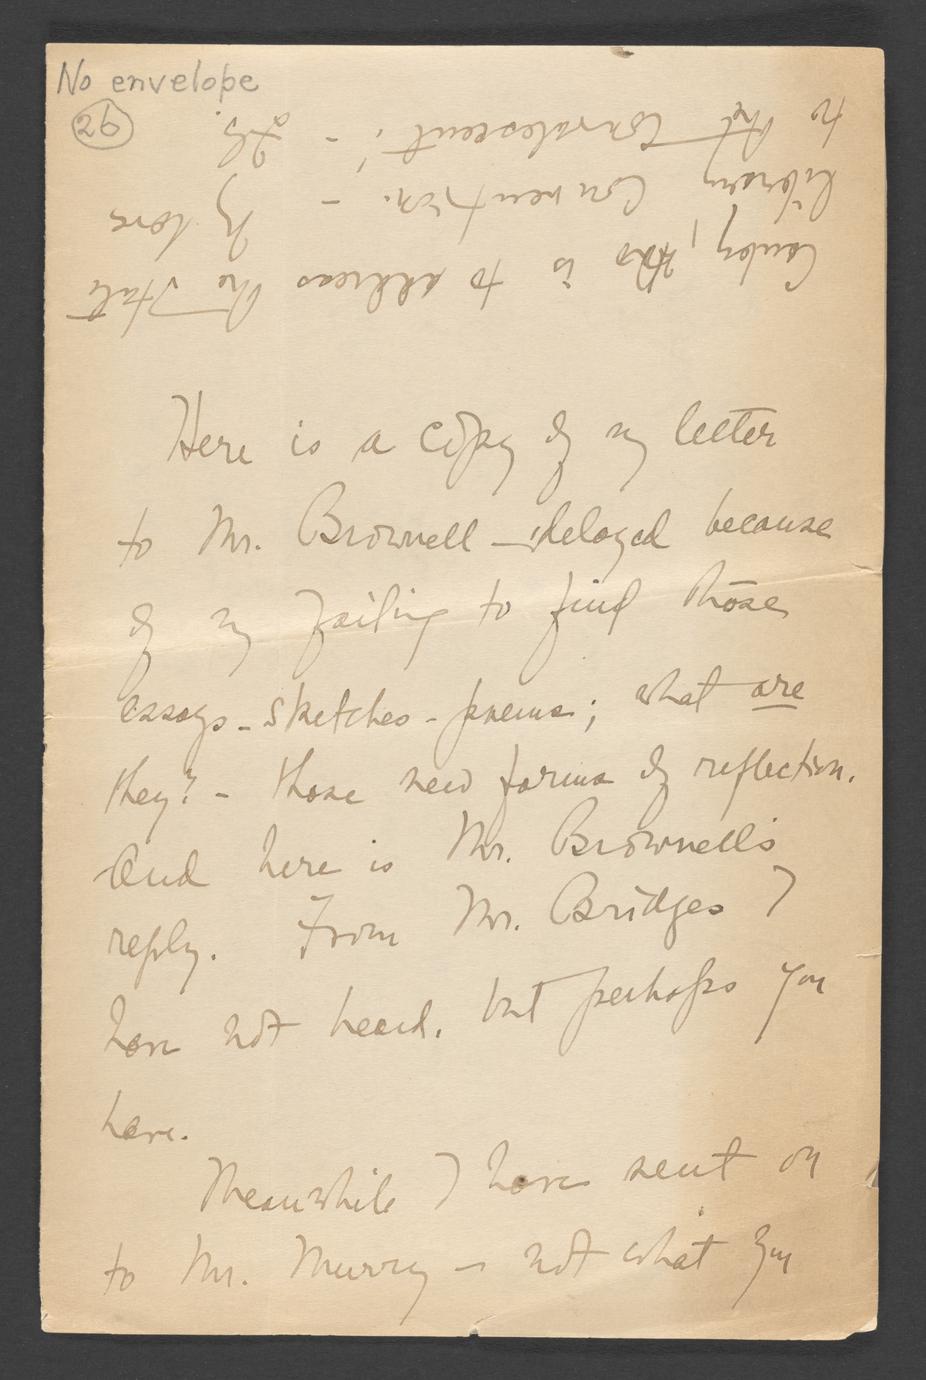 No envelope
26
Canby, this is to address the State
Library Convention. - My love
to the Convalescent! -
Here is a copy of my letter
to Mr. Brownell - delayed because
of my failing to find those
essays - sketches - poems; what are
they? - those new forms of reflection.
And here is Mr. Brownell's
reply. From Mr. Bridges I
have not heard. but perhaps you
have.
Meanwhile I have sent on
to Mr. Murry - not what you